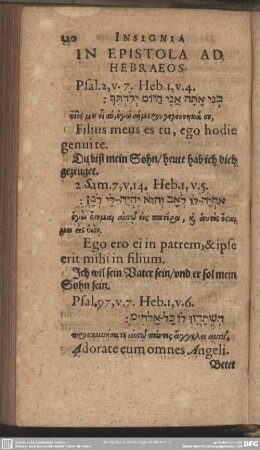 220 INSIGNIA
IN EPISTOLA AD
HEBRAEOS.
Psal. 2, v. 7. Heb. 1, v. 4.
בְּנִי אַתָּה אֲנִי הַיּוֹם יְלִדְתִּיךָ׃
ὑιός μου εἶ σύ, ἐγὼ σήμερον γεγέννηκά σε,
Filius meus es tu, ego hodie
genui te.
Du bist mein Sohn/ heute hab ich dich
gezeuget.
2. Sam. 7, v. 14. Heb. 1, v. 5.
אֶהְיֶה־לּוֹ לְאָב וְהוּא יִהְיֶה־לִּי לְבֵן׃
ἐγὼ ἔσομαι αὐτῷ εἰς πατέρα, καὶ αὐτὸς ἔσαι
μοι εἰς υἱόν.
Ego ero ei in patrem, & ipse
erit mihi in filium.
Ich wil sein Vater sein/ und er sol mein
Sohn sein.
Psal. 97, v. 7. Heb. 1, v. 6.
הִשְׁתַּחֲווּ־לוֹ כָּל־אֱלֹהִים׃
προσκυνήσατε αὐτῷ πάντες ἄγγελοι αὐτοῦ,
Adorate eum omnes Angeli.
Betet